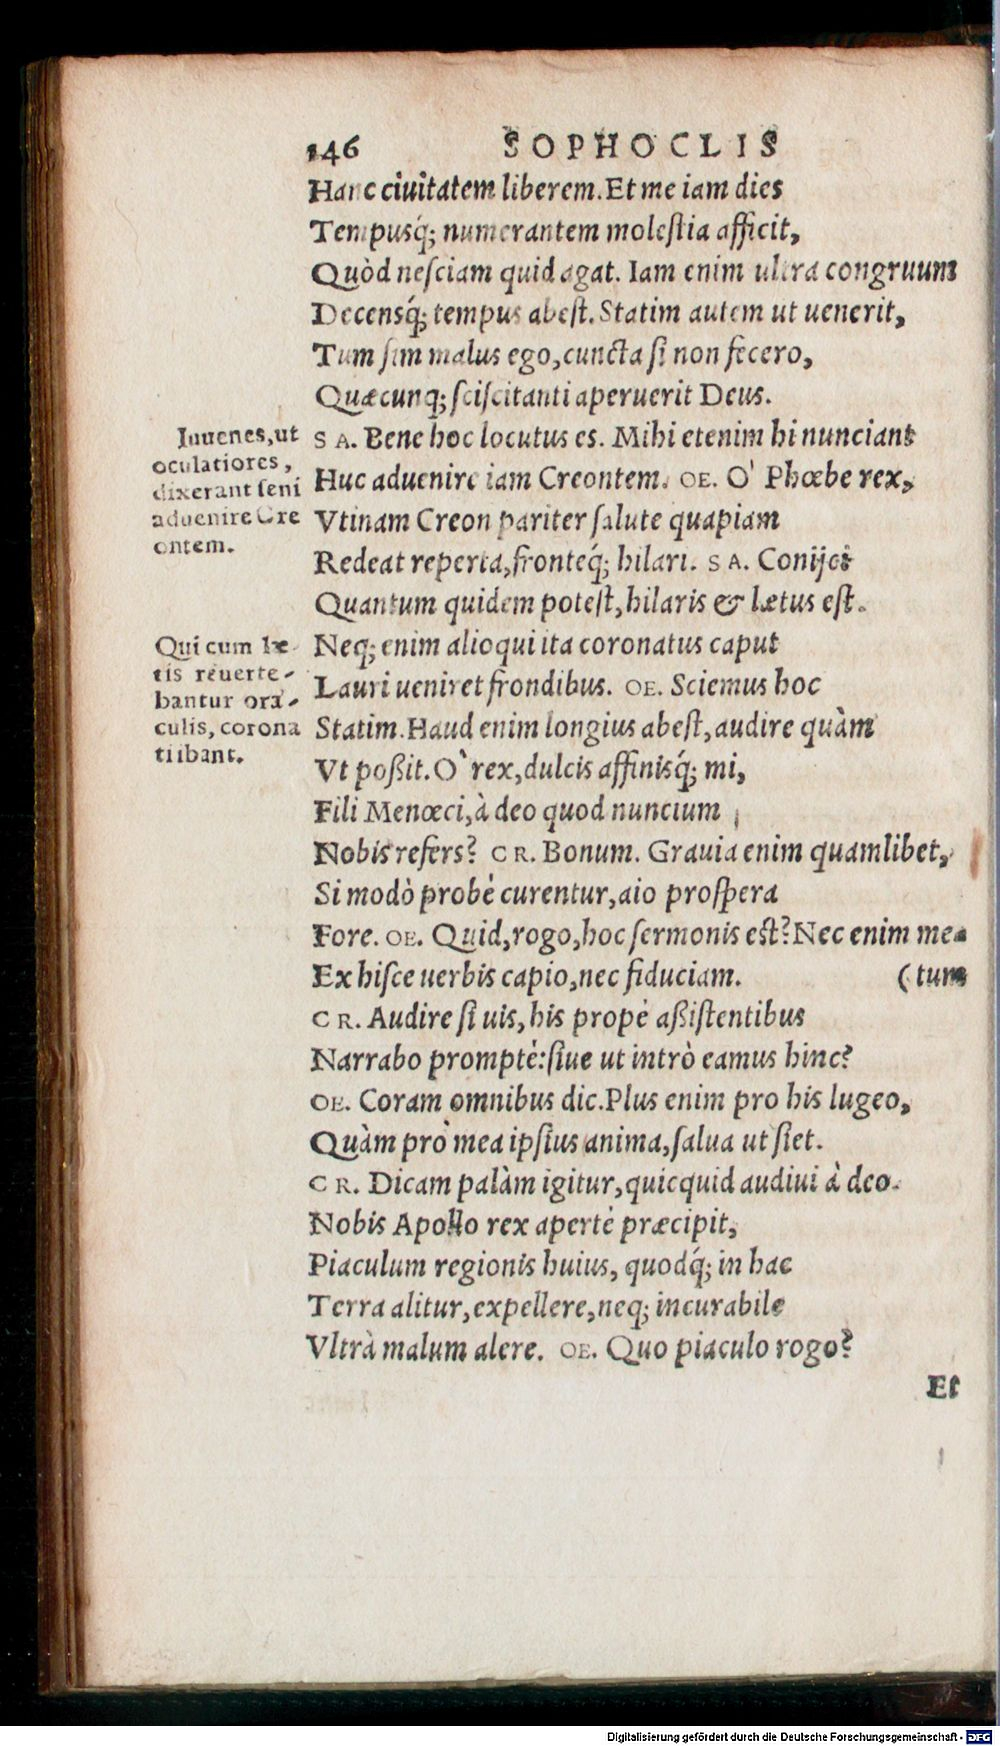 146 SOPHOCLIS
Hanc ciuitatem liberem. Et me iam dies
Tempusq́; numerantem molestia afficit,
Quòd nesciam quid agat. Iam enim ultra congruum
Decensq́; tempus abest. Statim autem ut uenerit,
Tum sim malus ego, cuncta si non fecero,
Quæcunq; sciscitanti aperuerit Deus.
Iuuenes, ut
oculatiores,
dixerant seni
aduenire Cre
ontem.
SA. Bene hoc locutus es. Mihi etenim hi nunciant
Huc aduenire iam Creontem. OE. O' Phœbe rex,
Vtinam Creon pariter salute quapiam
Redeat reperta, fronteq́; hilari. SA. Conijci
Quantum quidem potest, hilaris & lætus est.
Qui cum læ
tis reuerte-
bantur ora-
culis, corona
ti ibant.
Neq; enim alioqui ita coronatus caput
Lauri ueniret frondibus. OE. Sciemus hoc
Statim. Haud enim longius abest, audire quàm
Vt poßit. O` rex, dulcis affinisq́; mi,
Fili Menœci, à deo quod nuncium
Nobis refers? CR. Bonum. Grauia enim quamlibet,
Si modò probè curentur, aio prospera
Fore. OE. Quid, rogo, hoc sermonis est? Nec enim me-
Ex hisce uerbis capio, nec fiduciam. (tum
CR. Audire si uis, his propè aßistentibus
Narrabo promptè: siue ut intrò eamus hinc?
OE. Coram omnibus dic. Plus enim pro his lugeo,
Quàm pro mea ipsius anima, salua ut siet.
CR. Dicam palàm igitur, quicquid audiui à deo.
Nobis Apollo rex apertè præcipit,
Piaculum regionis huius, quodq́; in hac
Terra alitur, expellere, neq; incurabile
Vltrà malum alere. OE. Quo piaculo rogo?
Et
Digitalisierung gefördert durch die Deutsche Forschungsgemeinschaft - DFG